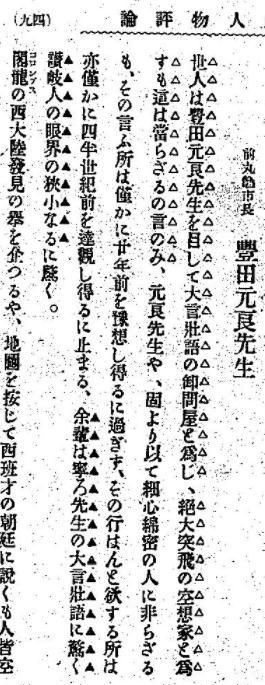 人物評論
(四九)
前丸龜市長
豐田元良先生
世人は豐田元良先生を目して大言壯語の卸問屋と爲し、絶大突飛の空想家と爲
すも這は當らざるの言のみ、元良先生や、固より以て細心綿密の人に非らざる
も、その言ふ所は僅かに廿年前を豫想し得るに過ぎず、その行はんと欲する所は
亦僅かに四半世紀前を達觀し得るに止まる、余輩は寧ろ先生の大言壯語に驚く
讃岐人の眼界の狹小なるに驚く。
閣龍の西大陸發見の擧を企つるや、地圖を按じて西班才の朝廷に説くも人皆空
コロンブス